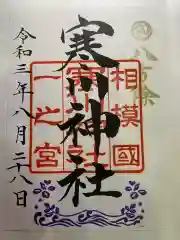 八方除
寒川神社
相模國
寒川神社
一之宮
令和三年八月二十八日